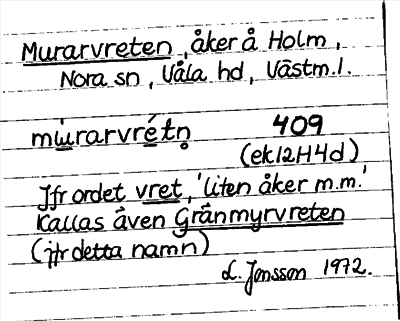 Murarvreten, åker å Holm,
Nora sn, Våla hd, Västm.l.
mu̇rarvrétn̥ 409
(ek12H4d)
Jfr ordet vret, 'liten åker m.m.'
Kallas även Gränmyrvreten
(jfr detta namn)
L. Jonsson 1972.